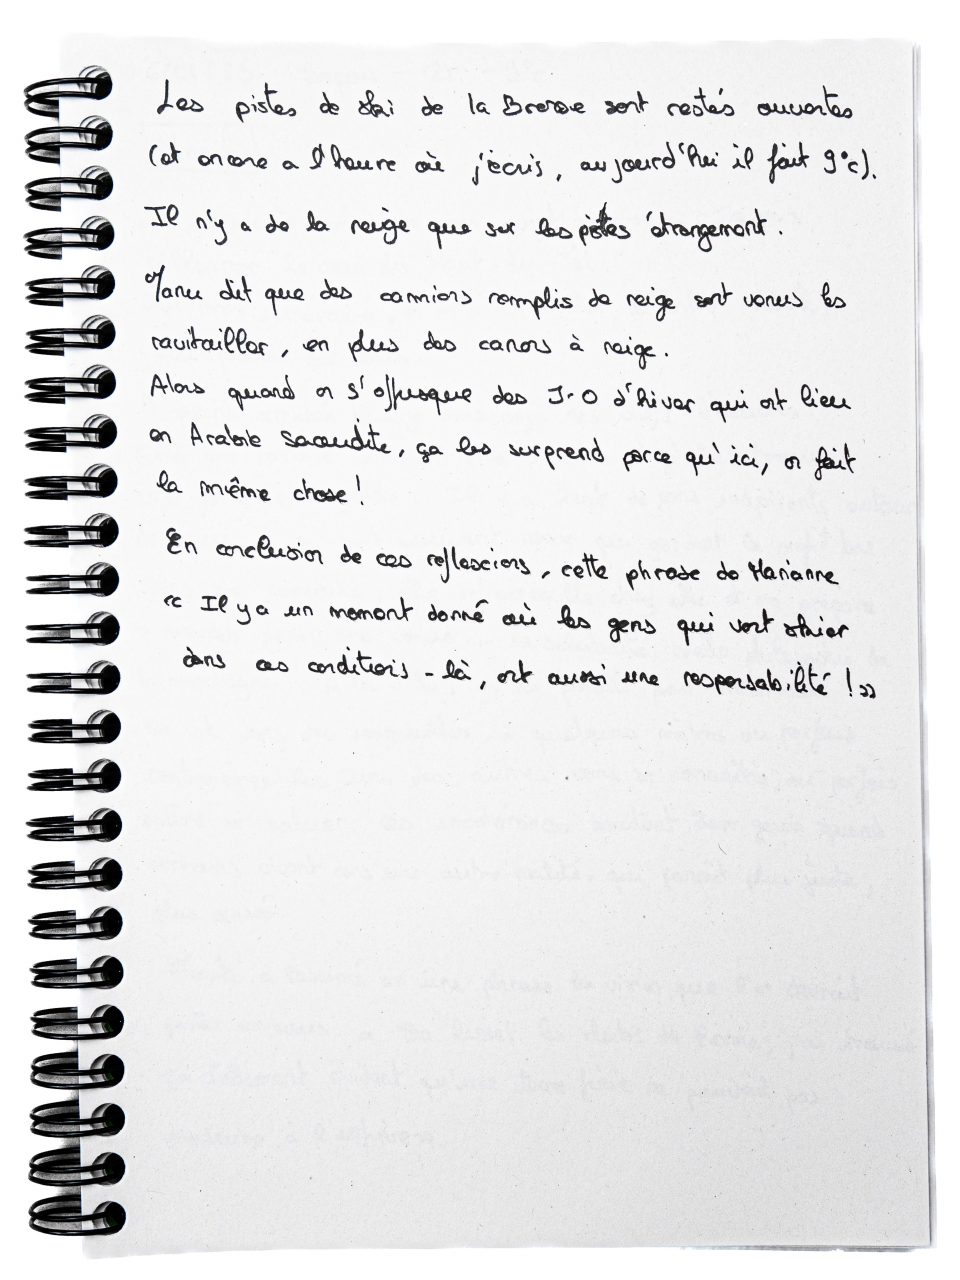 Les pistes de ski de la Bresse sont restés ouvertes
(et encore a l'heure où j'écris, aujourd'hui il fait 9°c).
Il n'y a de la neige que sur les pistes étrangement.
Manu dit que des camions remplis de neige sont venus les
ravitailler, en plus des canons à neige.
Alors quand on s'offusque des J.O d'hiver qui ont lieu
en Arabie Saoudite, ça les surprend parce qu'ici, on fait
la même chose !
En conclusion de ces reflexions, cette phrase de Marianne
« Il y a un moment donné où les gens qui vont skier
dans ces conditions-là, ont aussi une responsabilité ! »